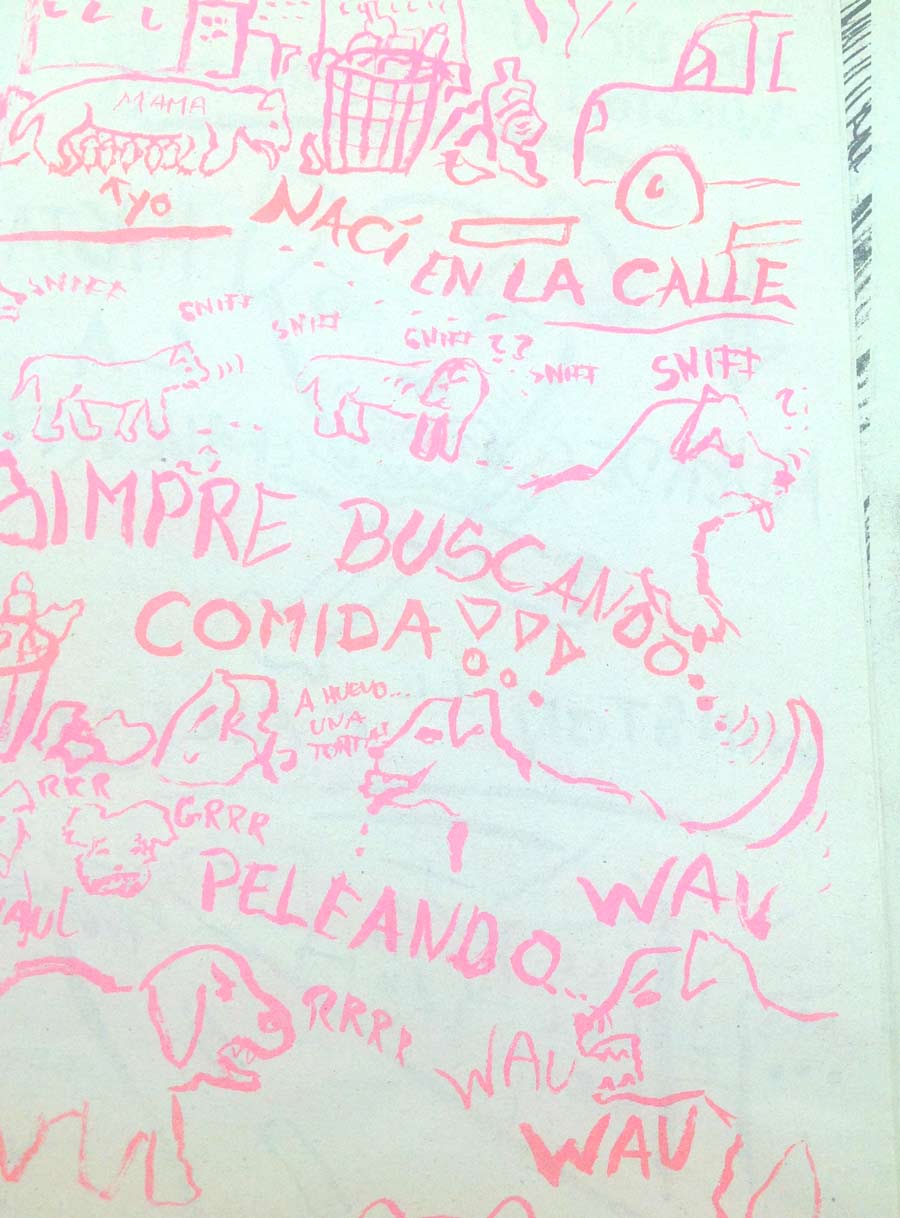 MAMA
YO
NACÍ
EN LA CALLE
SNIFF
SNIFF
SNIFF
SNIFF ??
SNIFF
SNIFF
??
SIMPRE BUSCANDO
COMIDA
A HUEVO...
UNA
RRR
GRRR
PELEANDO...
WAU
RRRR
WAU
WAU